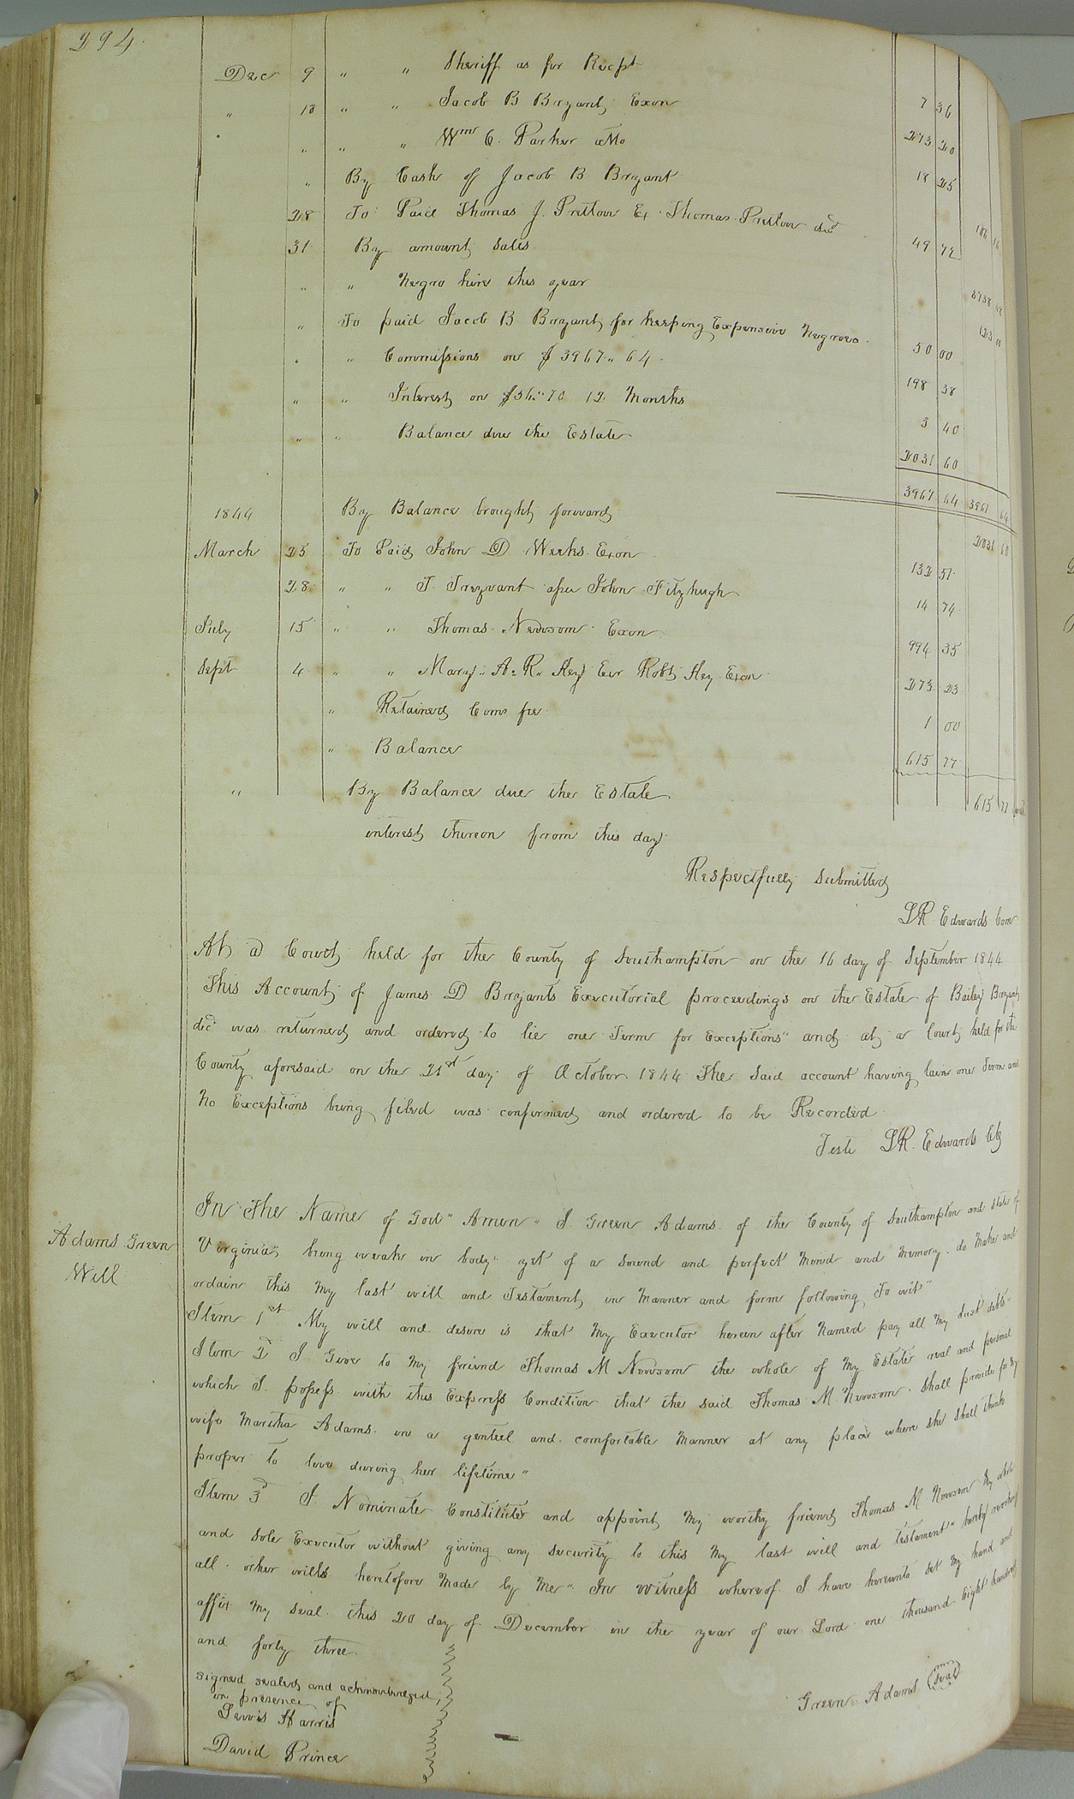 294.
Dec 9 " " Sheriff as per Recpt 7 36
" 18 " " Jacob B Bryant, Exon 273 20
" " " Wm C. Parker atto 18 25
" By Cash of Jacob B Bryant
28 To Paid Thomas J. Pretlow Ex. Thomas Pretlow decd 49 72
31 By amount sales
" " Negro hire this year
" To paid Jacob B Bryant, for keeping Expensive Negroes 50 00
" " Commissions on $ 3967 " 64 198 38
" " Interest on $56 " 70 12 Months 3 40
" " Balance due the Estate 2031 60
3967 64 3967 64
1844 By Balance brought forward 2031 60
March 25 To Paid John D Weeks Exon 132 51
28 " " T Trezvant apee John Fitzhugh 14 74
July 15 " " Thomas Newsom Exon 994 35
Sept 4 " " Mary " A " R " Key Exr Robt Key Exon 273 23
" Retained Coms fee 1 00
" Balance 615 77
" By Balance due the Estate 615 77
interest thereon from this day
Respectfully submitted
LR Edwards Com
At a Court held for the County of Southampton on the 16 day of September 1844
This Account of James D Bryants Executorial proceedings on the Estate of Bailey Bryant
decd was returned and ordered to lie one Term for Exceptions " and at a Court held for the
County aforesaid on the 21st day of October 1844 The said account having lain one Term and
No Exceptions being filed was confirmed and ordered to be Recorded
Teste LR. Edwards Clk
Adams Green
Will
In The Name of God " Amen " I Green Adams of the County of Southampton and State of
Virginia, being weak in body yet of a sound and perfect Mind and Memory do Make and
ordain this My last will and Testament, in Manner and form following To wit "
Item 1st My will and desire is that My Executor herein after Named pay all My Just debts
Item 2 I Give to My friend Thomas M Newsom the whole of My Estate real and personal
which I possess with this Express Condition that the said Thomas M Newsom shall provide for My
wife Martha Adams in a genteel and comfortable Manner at any place where she shall think
proper to live during her lifetime "
Item 3d I Nominate Constitute and appoint My worthy friend Thomas M Newsom My whole
and sole Executor without giving any security to this My last will and testament " hereby revoking
all other wills heretofore Made by Me " In witness whereof I have hereunto set My hand and
affix My seal this 20 day of December in the year of our Lord one thousand Eight hundred
and forty three.
Signed sealed and acknowledged,
in presence of
Lewis Harris
David Prince
Green Adams Seal